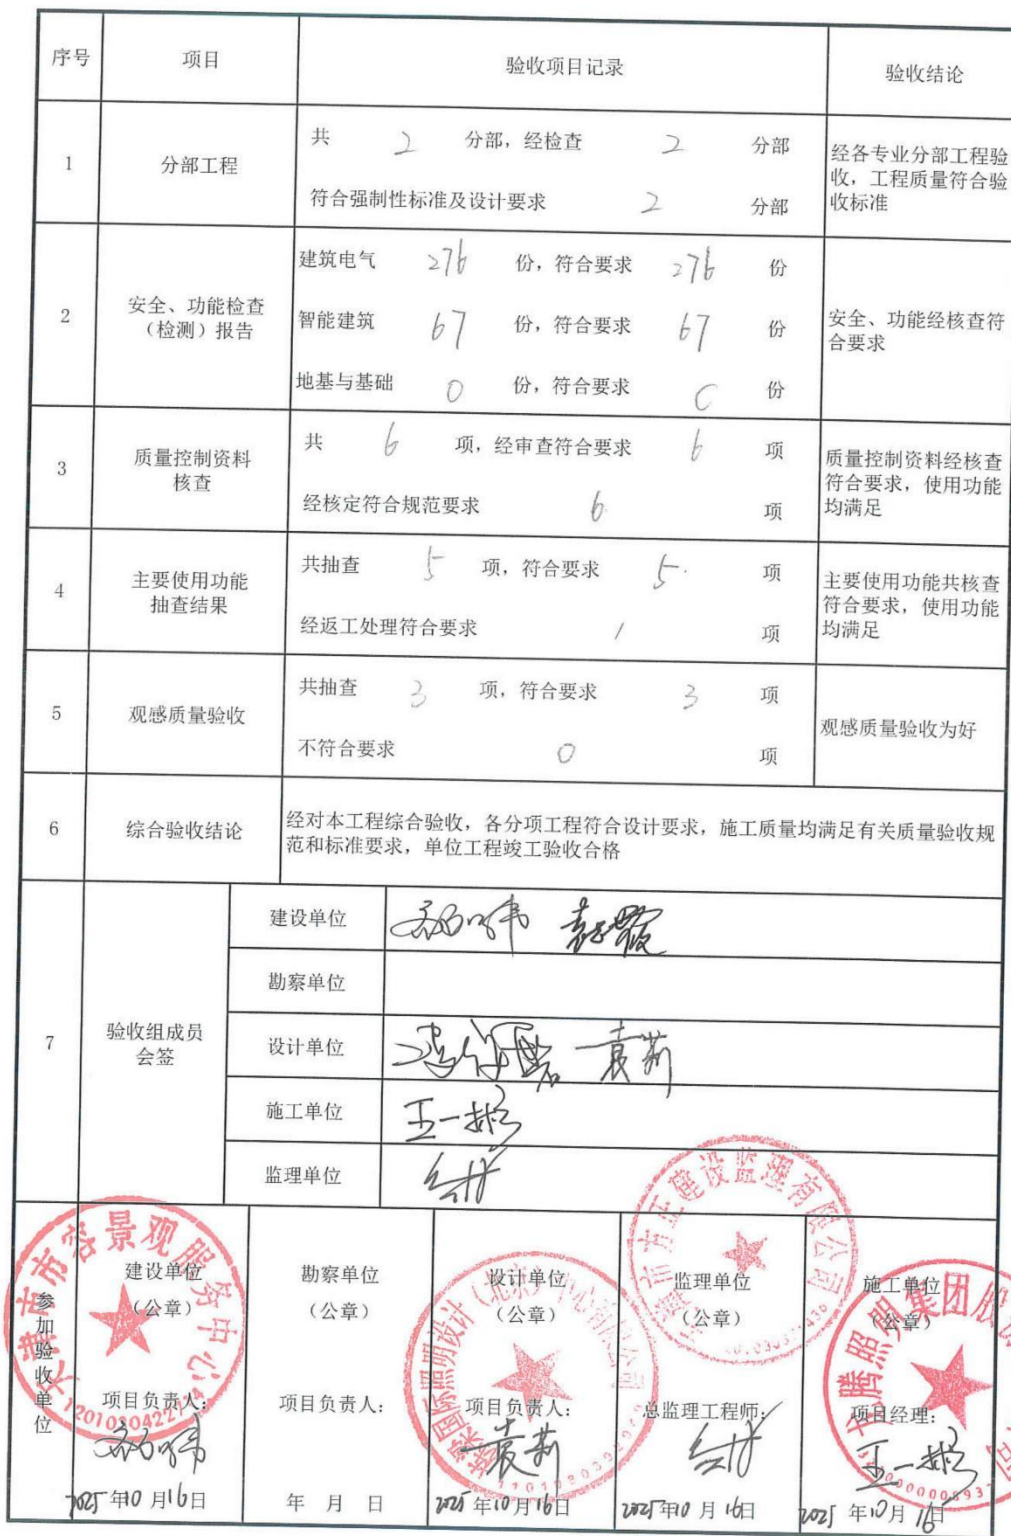 序号 项目 验收项目记录 验收结论
1 分部工程
共 2 分部，经检查 2 分部
符合强制性标准及设计要求 2 分部
经各专业分部工程验
收，工程质量符合验
收标准
2 安全、功能检查
（检测）报告
建筑电气 276 份，符合要求 276 份
智能建筑 67 份，符合要求 67 份
地基与基础 0 份，符合要求 0 份
安全、功能经核查符
合要求
3 质量控制资料
核查
共 6 项，经审查符合要求 6 项
经核定符合规范要求 6 项
质量控制资料经核查
符合要求，使用功能
均满足
4 主要使用功能
抽查结果
共抽查 5 项，符合要求 5 项
经返工处理符合要求 / 项
主要使用功能共核查
符合要求，使用功能
均满足
5 观感质量验收
共抽查 3 项，符合要求 3 项
不符合要求 0 项
观感质量验收为好
6 综合验收结论
经对本工程综合验收，各分项工程符合设计要求，施工质量均满足有关质量验收规
范和标准要求，单位工程竣工验收合格
7 验收组成员
会签
建设单位
勘察单位
设计单位 袁莉
施工单位 王一彬
监理单位
参加验收单位
建设单位
（公章）
项目负责人：
2025年10月16日
天津市市容景观服务中心
勘察单位
（公章）
项目负责人：
年 月 日
设计单位
（公章）
项目负责人：
袁莉
2025年10月16日
国际照明设计（北京）中心有限公司
监理单位
（公章）
总监理工程师：
2025年10月16日
市方正建设监理有限公司
施工单位
（公章）
项目经理：
王一彬
2025年10月16日
龙腾照明集团股